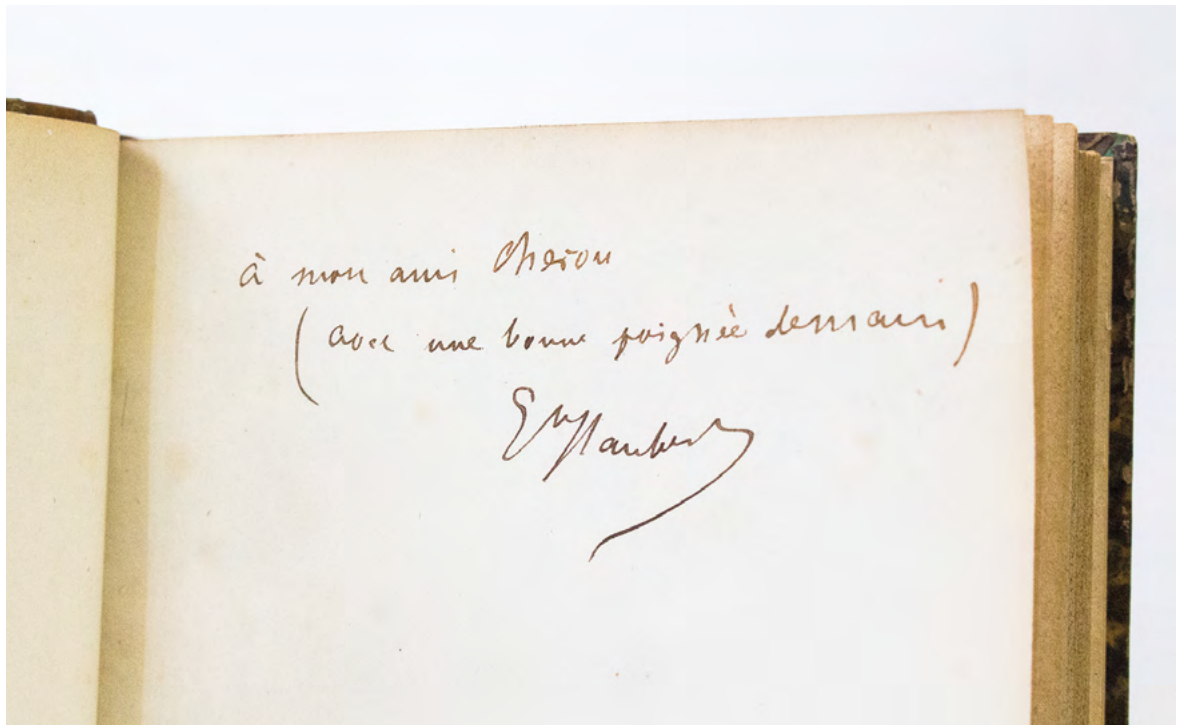 à mon ami Cheron
(avec une bonne poignée demain)
Gve Flaubert